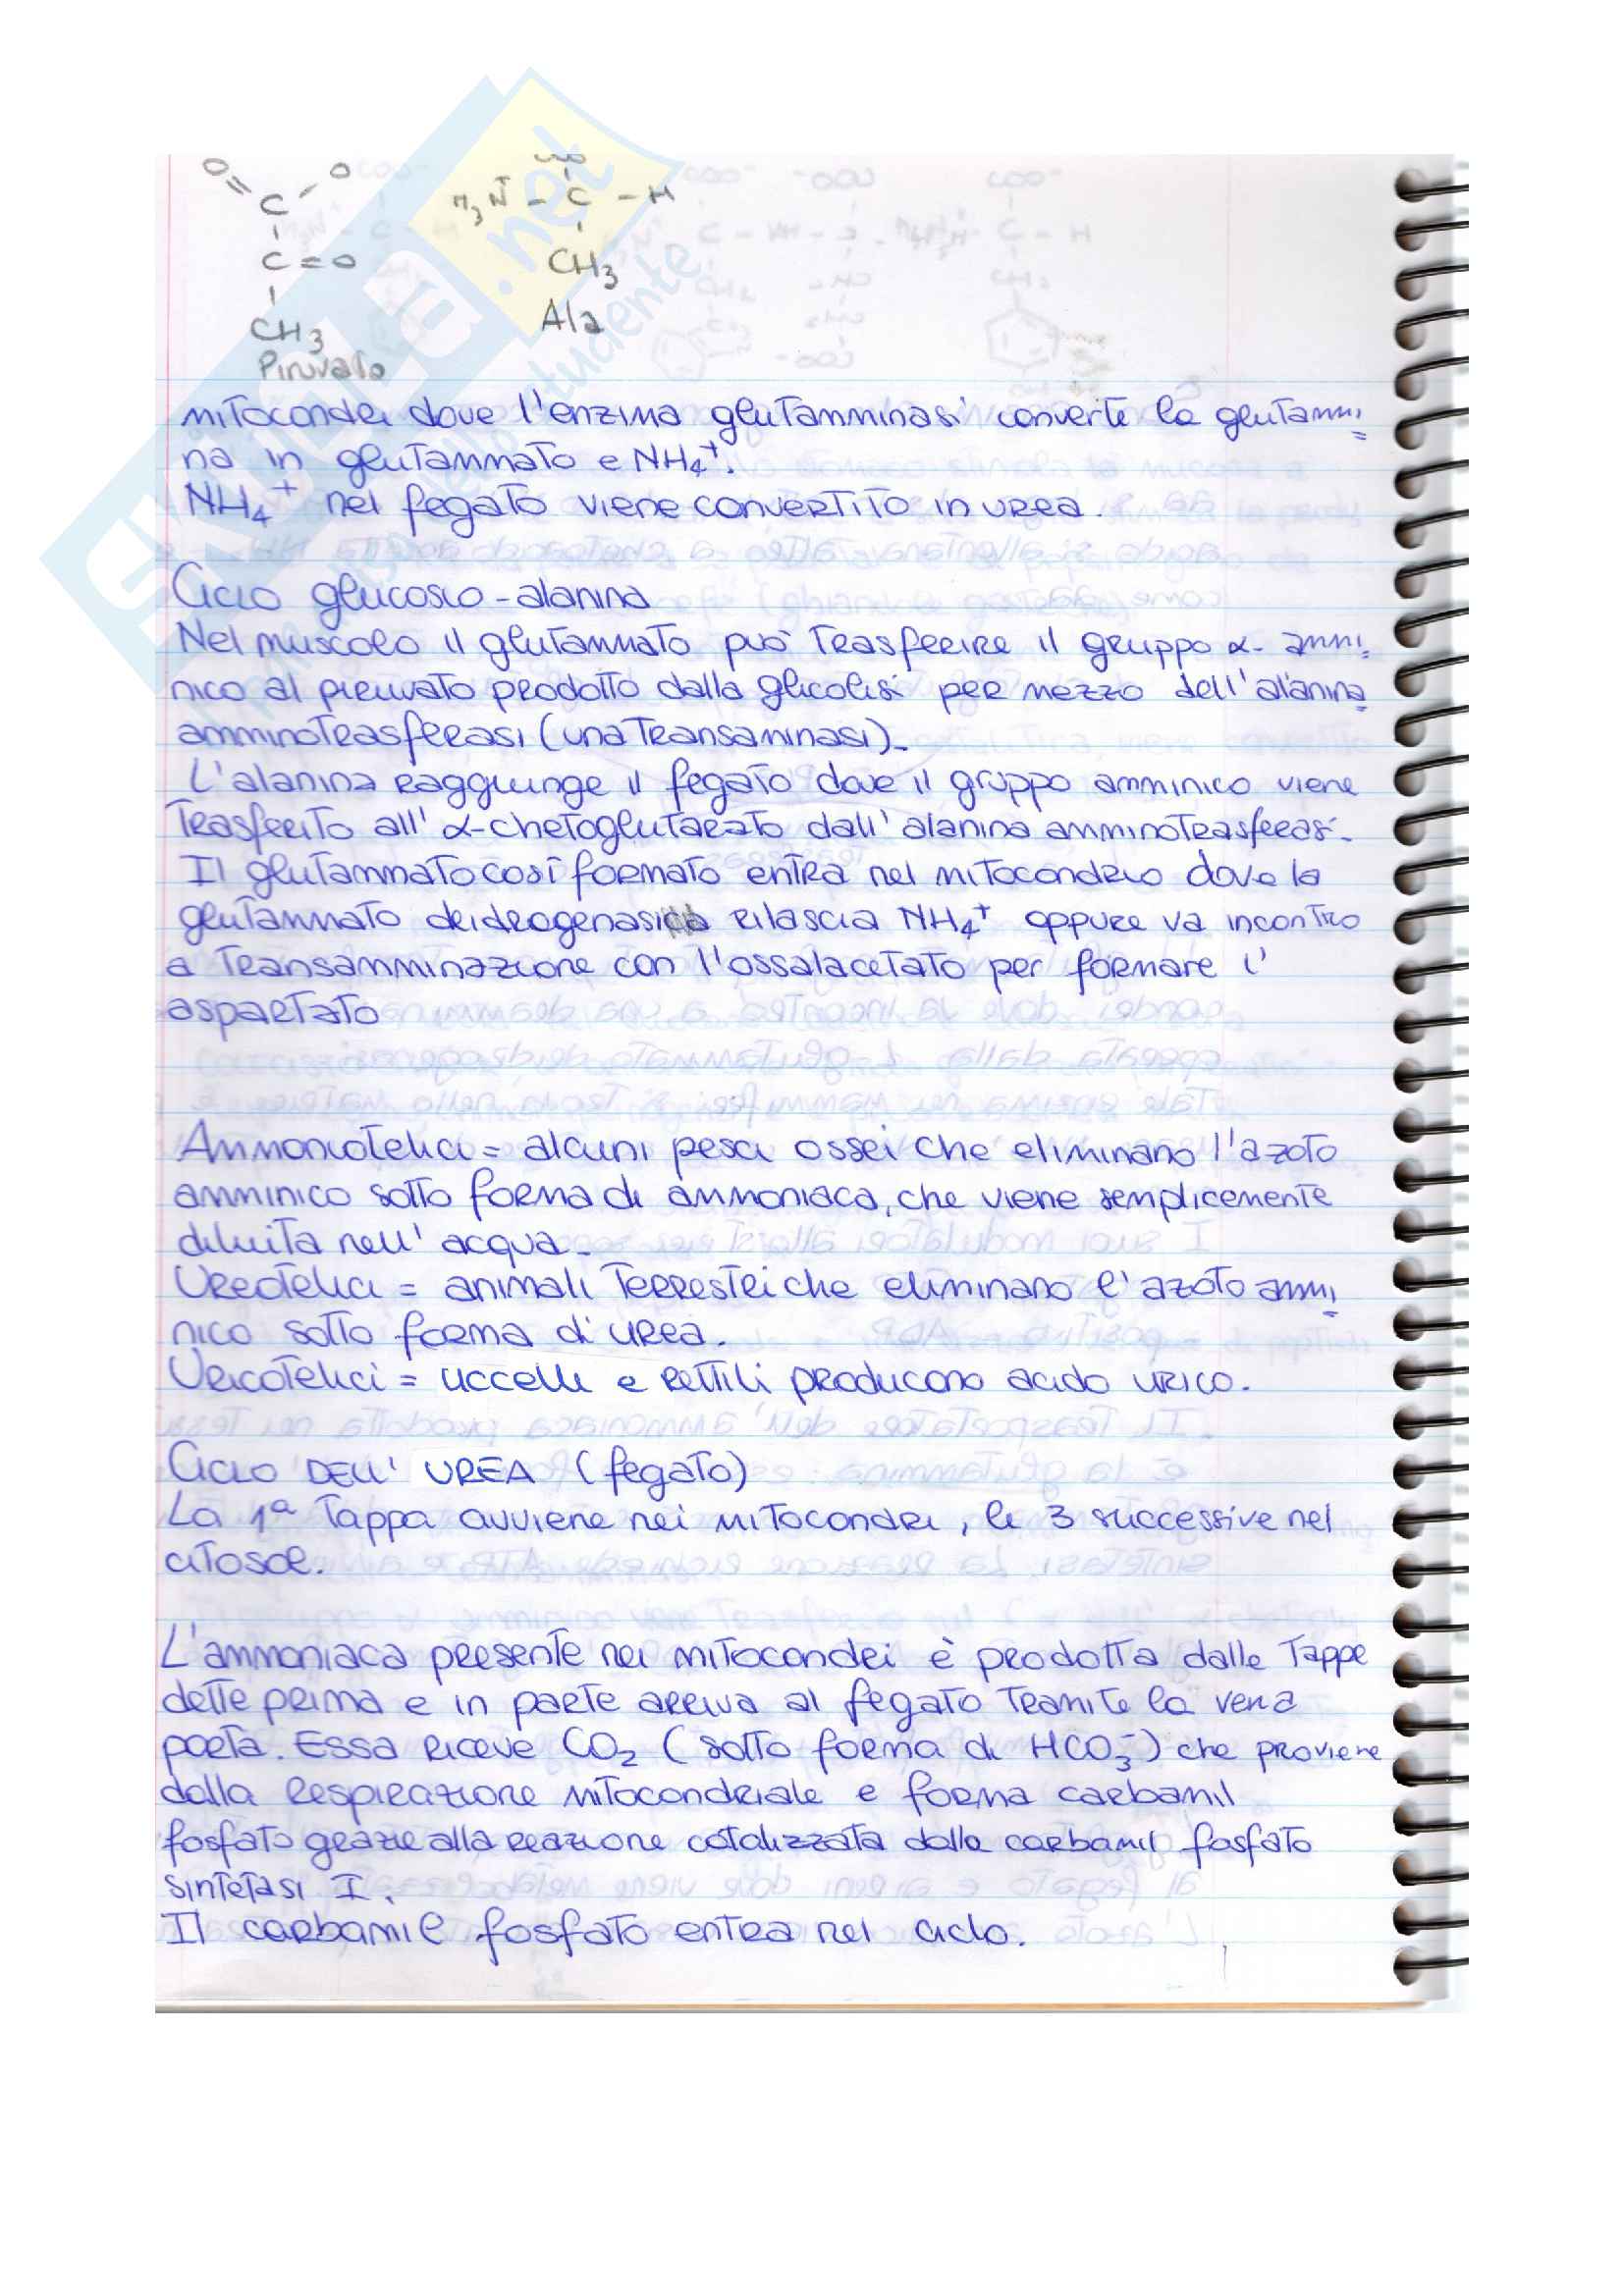 O O COO
C H3N+ - C - H
C = O CH3
CH3 Ala
Piruvato
mitocondri dove l'enzima glutamminasi converte la glutammi=
na in glutammato e NH4+.
NH4+ nel fegato viene convertito in urea.
Ciclo glucosio-alanina
Nel muscolo il glutammato può trasferire il gruppo α-ammi=
nico al piruvato prodotto dalla glicolisi per mezzo dell'alanina
amminotrasferasi (una transaminasi).
L'alanina raggiunge il fegato dove il gruppo amminico viene
trasferito all'α-chetoglutarato dall'alanina amminotrasferasi.
Il glutammato così formato entra nel mitocondrio dove la
glutammato deidrogenasi rilascia NH4+ oppure va incontro
a transamminazione con l'ossalacetato per formare l'
aspartato
Ammoniotelici = alcuni pesci ossei che eliminano l'azoto
amminico sotto forma di ammoniaca, che viene semplicemente
diluita nell'acqua.
Ureotelici = animali terrestri che eliminano l'azoto ammi=
nico sotto forma di urea.
Uricotelici = uccelli e rettili producono acido urico.
Ciclo dell'UREA (fegato)
La 1ª tappa avviene nei mitocondri, le 3 successive nel
citosol.
L'ammoniaca presente nei mitocondri è prodotta dalle tappe
dette prima e in parte arriva al fegato tramite la vena
porta. Essa riceve CO2 (sotto forma di HCO3-) che proviene
dalla respirazione mitocondriale e forma carbamil
fosfato grazie alla reazione catalizzata dalla carbamil fosfato
sintetasi I.
Il carbamil fosfato entra nel ciclo.